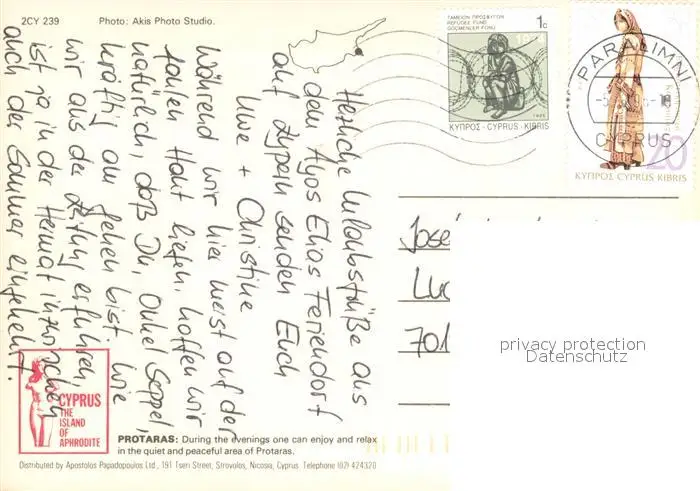 2CY 239
Photo: Akis Photo Studio.
Herzliche Urlaubsgrüße aus
dem Ayos Elias Feriendorf
auf Zypern senden Euch
Uwe + Christine
Während wir hier meist auf der
faulen Haut liegen, hoffen wir
natürlich, daß Du, Onkel Seppel,
kräftig am gehen bist. Wie
wir aus der Zeitung erfuhren,
ist ja in der Heimat inzwischen
auch der Sommer eingekehrt.
ΤΑΜΕΙΟΝ ΠΡΟΣΦΥΓΩΝ
REFUGEE FUND
GÖÇMENLER FONU
1c
ΚΥΠΡΟΣ - CYPRUS - KIBRIS
PARALIMNI
CYPRUS
20
ΚΥΠΡΟΣ CYPRUS KIBRIS
José
Luc
701
privacy protection
Datenschutz
CYPRUS
THE
ISLAND
OF
APHRODITE
PROTARAS: During the evenings one can enjoy and relax
in the quiet and peaceful area of Protaras.
Distributed by Apostolos Papadopoulos Ltd., 191 Tseri Street, Strovolos, Nicosia, Cyprus. Telephone (02) 424320